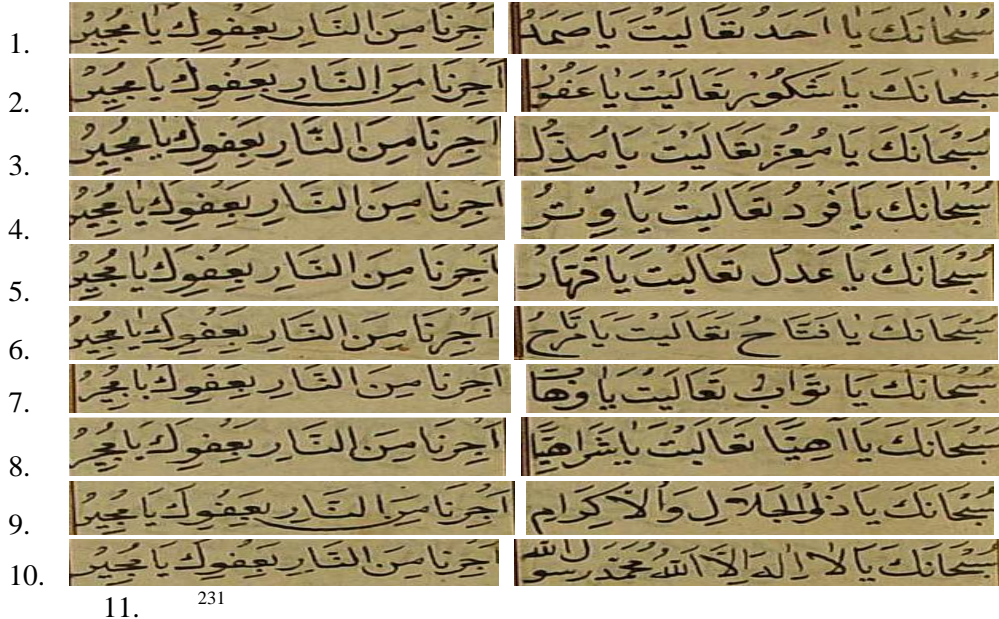 1. سُبْحَانَكَ يَا اَحَدُ تَعَالَيْتَ يَا صَمَدُ اَجِرْنَا مِنَ النَّارِ بِعَفْوِكَ يَا مُجِيرُ
2. سُبْحَانَكَ يَا شَكُورُ تَعَالَيْتَ يَا غَفُورُ اَجِرْنَا مِنَ النَّارِ بِعَفْوِكَ يَا مُجِيرُ
3. سُبْحَانَكَ يَا مُعِزُّ تَعَالَيْتَ يَا مُذِلُّ اَجِرْنَا مِنَ النَّارِ بِعَفْوِكَ يَا مُجِيرُ
4. سُبْحَانَكَ يَا فَرْدُ تَعَالَيْتَ يَا وِتْرُ اَجِرْنَا مِنَ النَّارِ بِعَفْوِكَ يَا مُجِيرُ
5. سُبْحَانَكَ يَا عَدْلُ تَعَالَيْتَ يَا قَهَّارُ اَجِرْنَا مِنَ النَّارِ بِعَفْوِكَ يَا مُجِيرُ
6. سُبْحَانَكَ يَا فَتَّاحُ تَعَالَيْتَ يَا اَجِرْنَا مِنَ النَّارِ بِعَفْوِكَ يَا مُجِيرُ
7. سُبْحَانَكَ يَا تَوَّابُ تَعَالَيْتَ يَا وَهَّا اَجِرْنَا مِنَ النَّارِ بِعَفْوِكَ يَا مُجِيرُ
8. سُبْحَانَكَ يَا آهِيًّا تَعَالَيْتَ يَا شَرَاهِيًّا اَجِرْنَا مِنَ النَّارِ بِعَفْوِكَ يَا مُجِيرُ
9. سُبْحَانَكَ يَا ذَا الْجَلَالِ وَالْاِكْرَامِ اَجِرْنَا مِنَ النَّارِ بِعَفْوِكَ يَا مُجِيرُ
10. سُبْحَانَكَ يَا لَا اِلٰهَ اِلَّا اللّٰهُ مُحَمَّدٌ رَسُولُ اللّٰهِ اَجِرْنَا مِنَ النَّارِ بِعَفْوِكَ يَا مُجِيرُ
11. 231